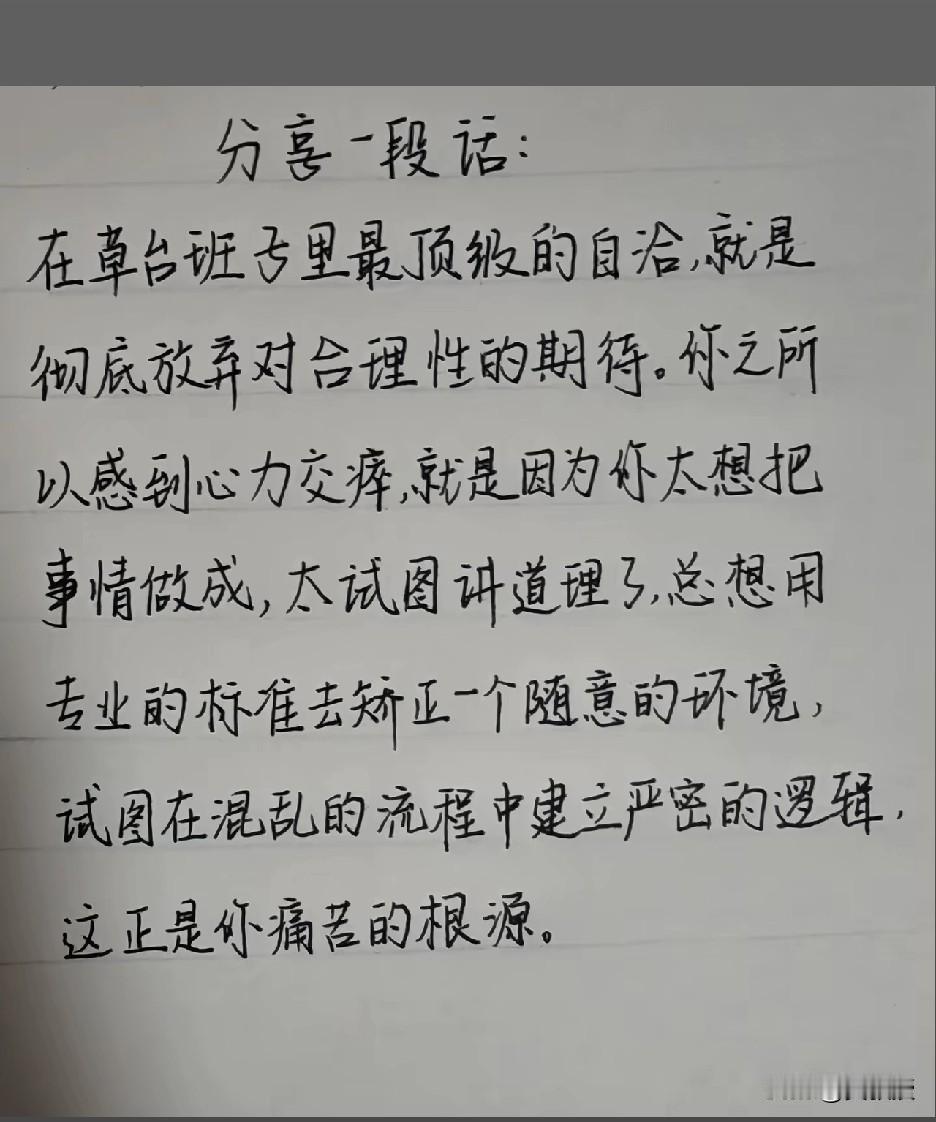 分享一段话：
在草台班子里最顶级的自洽,就是
彻底放弃对合理性的期待。你之所
以感到心力交瘁,就是因为你太想把
事情做成,太试图讲道理了,总想用
专业的标准去矫正一个随意的环境,
试图在混乱的流程中建立严密的逻辑,
这正是你痛苦的根源。